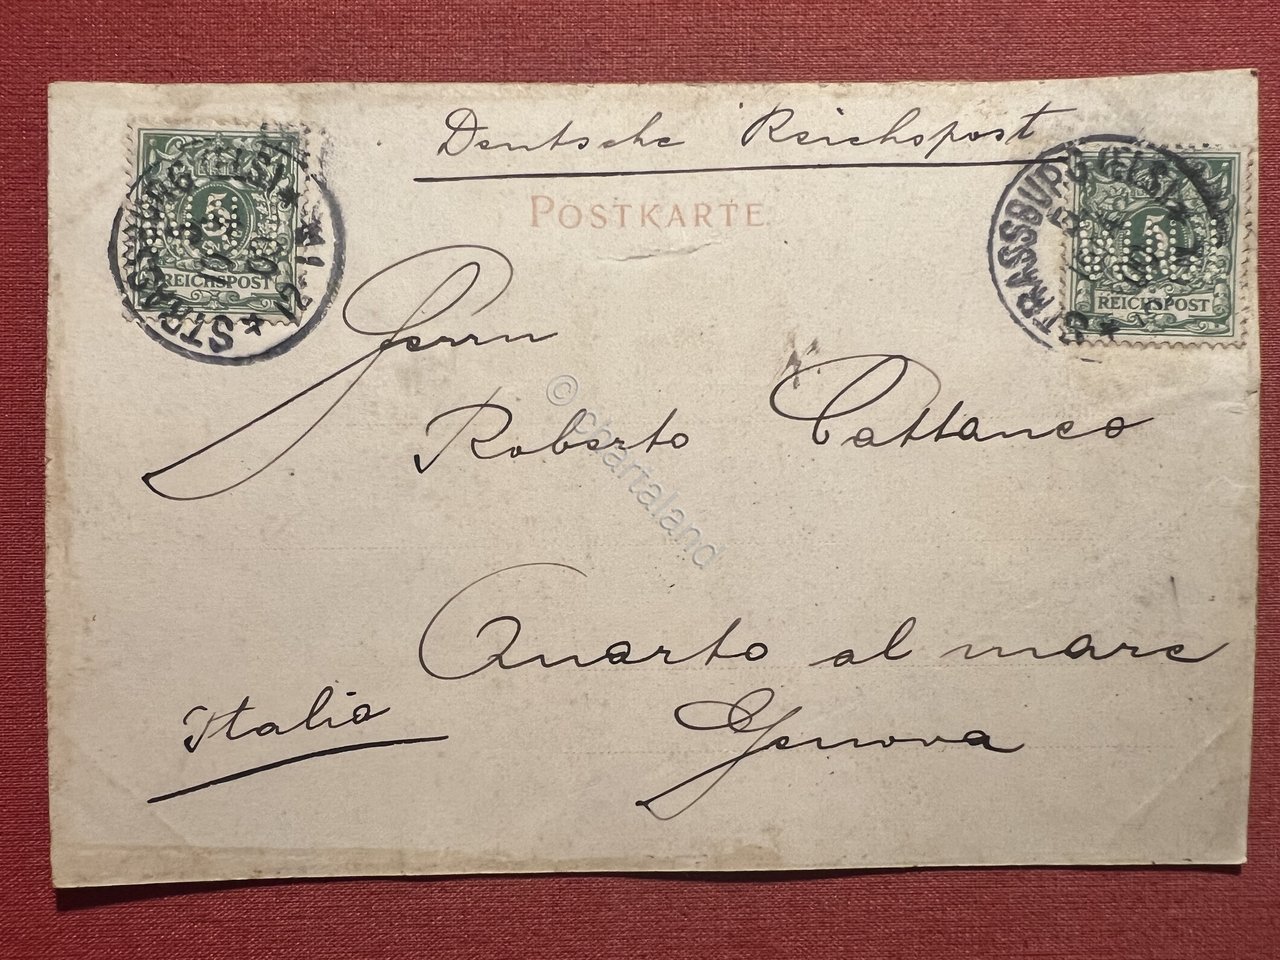 Deutsche Reichspost
POSTKARTE
STRASSBURG (ELS)
5
REICHSPOST
STRASSBURG (ELS)
5
REICHSPOST
Herrn
Roberto Cattaneo
© chartaland
Quarto al mare
Italia
Genova